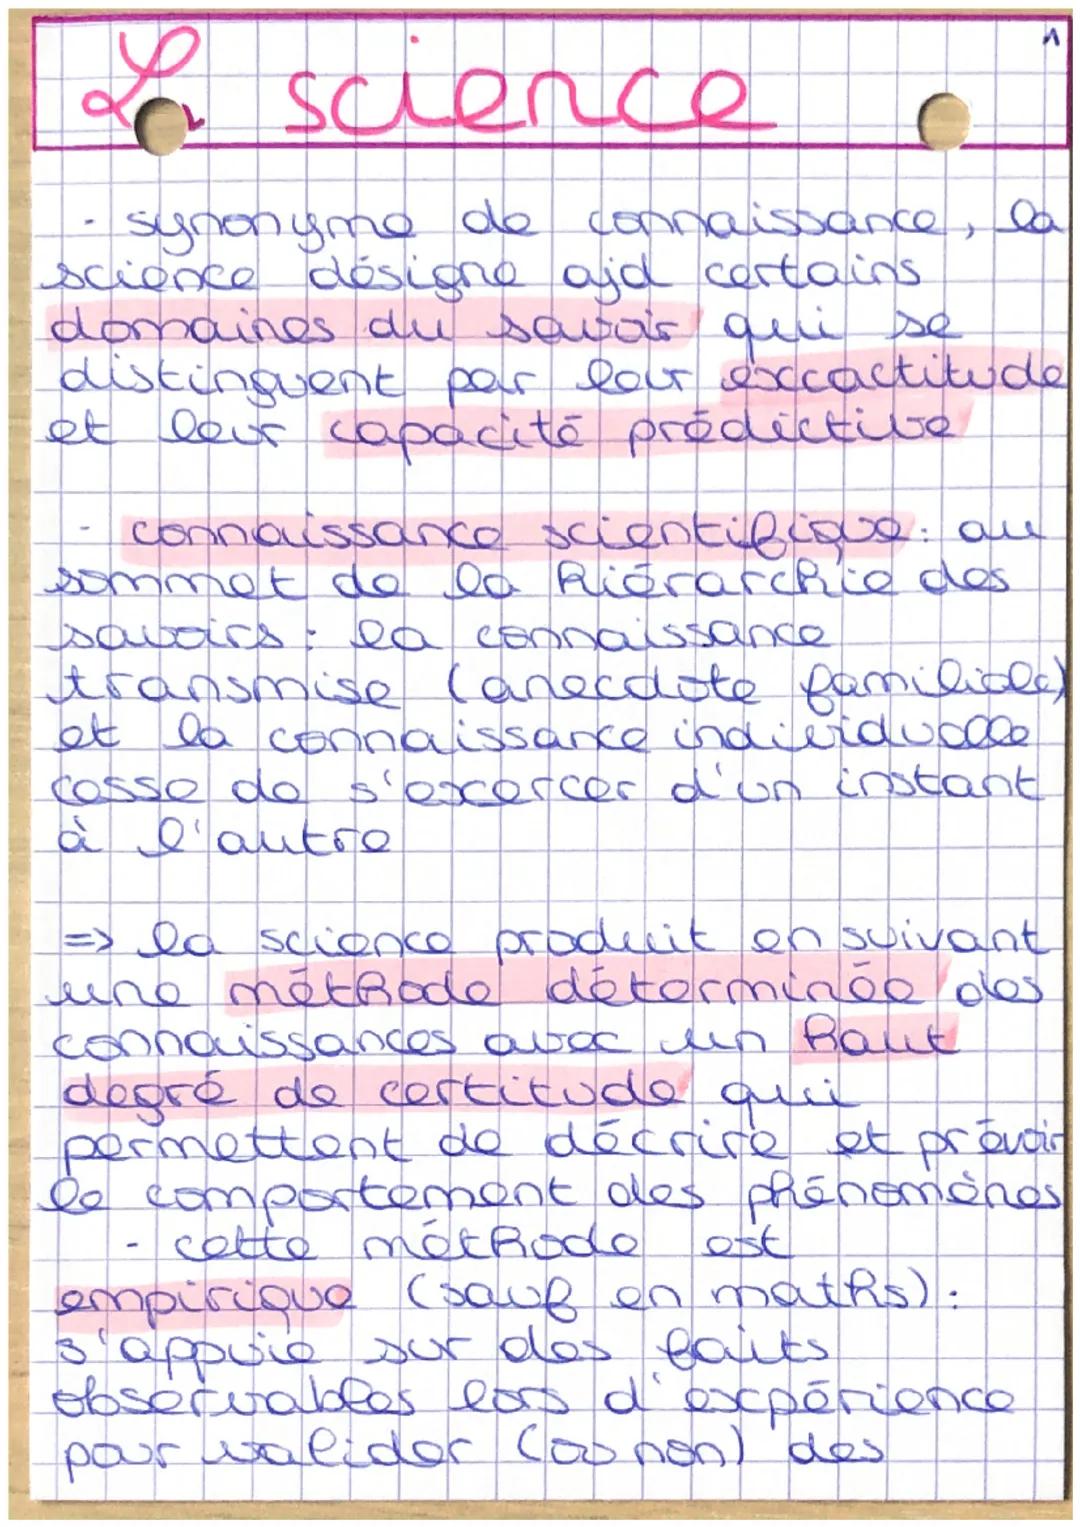 La science
1
- synonyme de connaissance, la
science désigne ajd certains
domaines du savoir qui se
distinguent par leur exccactitude
et leur capacité prédictive
- connaissance scientifique : au
sommet de la hiérarchie des
savoirs : la connaissance
transmise (anecdote familiale)
et la connaissance individuelle
cesse de s'excercer d'un instant
à l'autre
=> la science produit en suivant
une méthode déterminée des
connaissances avec un haut
degré de certitude qui
permettent de décrire et prévoir
le comportement des phénomènes
- cette méthode est
empirique (sauf en maths) :
s'appuie sur des faits
observables lors d'expérience
pour valider (ou non) des